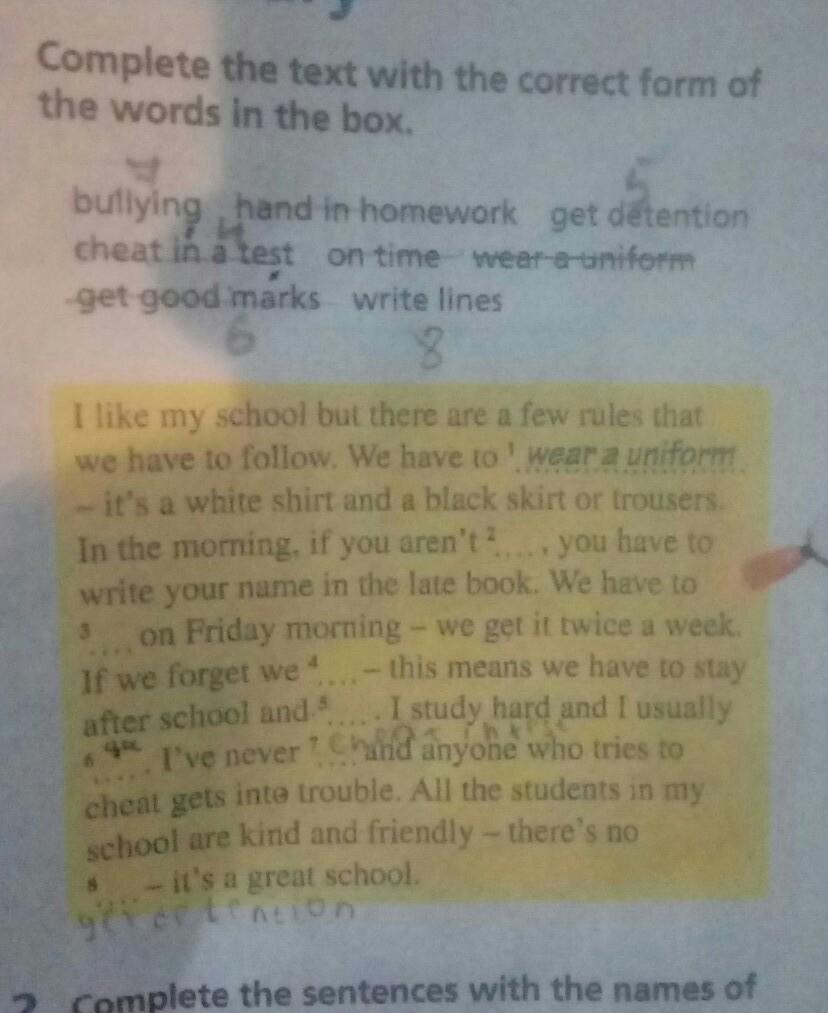 Complete the text with the correct form of
the words in the box.
7 5
bullying hand in homework get detention
cheat in a test on time wear a uniform
get good marks write lines
6 8
I like my school but there are a few rules that
we have to follow. We have to ¹ wear a uniform
– it's a white shirt and a black skirt or trousers.
In the morning, if you aren't ²...., you have to
write your name in the late book. We have to
³.... on Friday morning – we get it twice a week.
If we forget we ⁴.... – this means we have to stay
after school and ⁵..... I study hard and I usually
⁶..... I've never ⁷.... and anyone who tries to
cheat gets into trouble. All the students in my
school are kind and friendly – there's no
⁸.... – it's a great school.
get detention
2 Complete the sentences with the names of